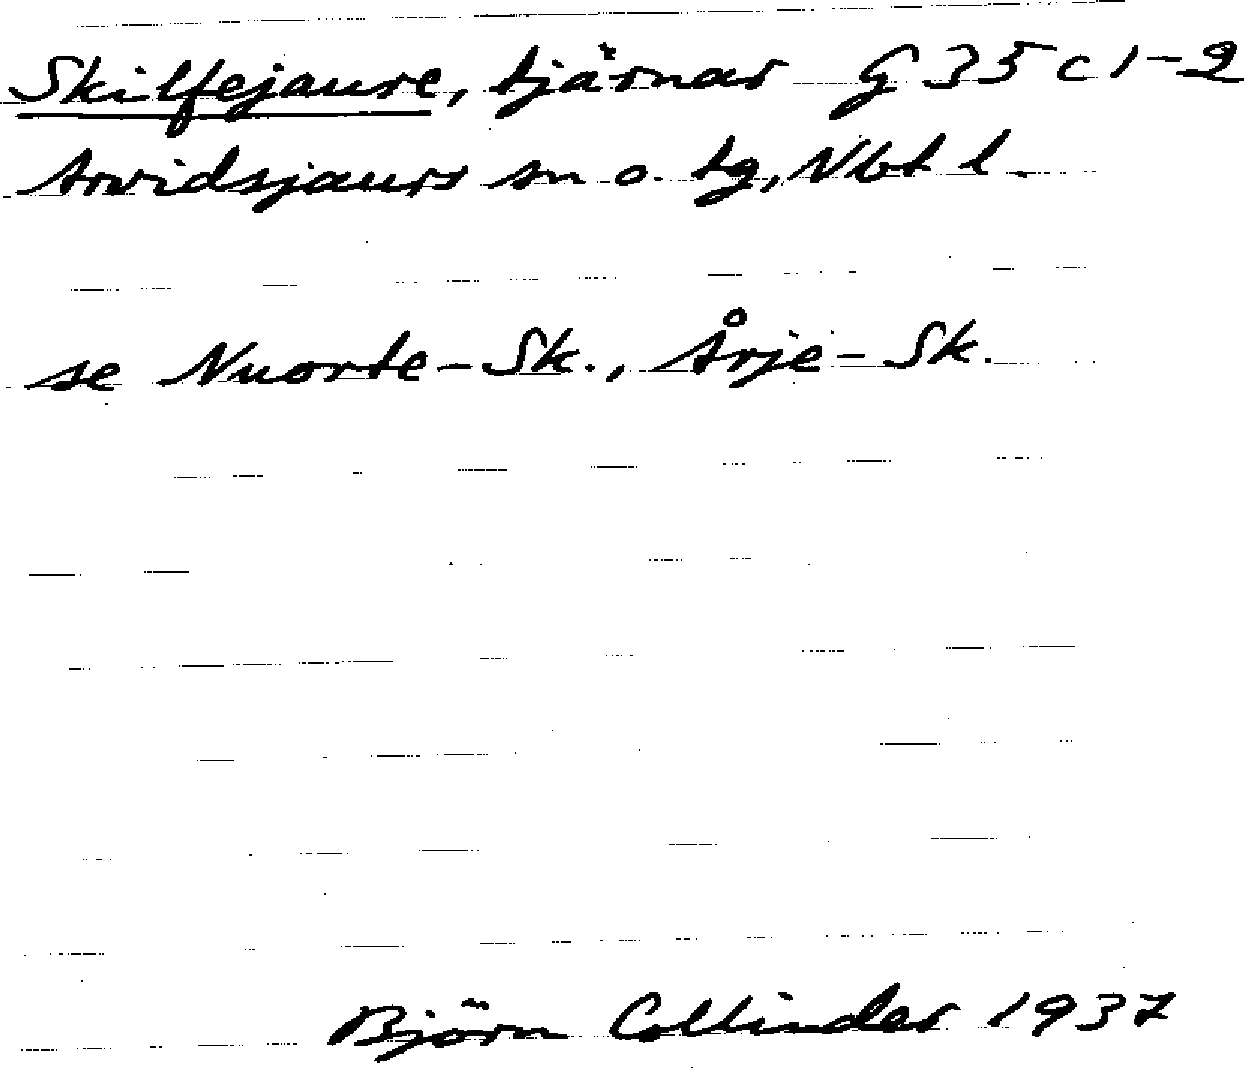 Skilfejaure, tjärnar G 35 c 1-2
Arvidsjaurs sn o. tg, Nbt l.
se Nuorte-Sk., Årje-Sk.
Björn Collinder 1937